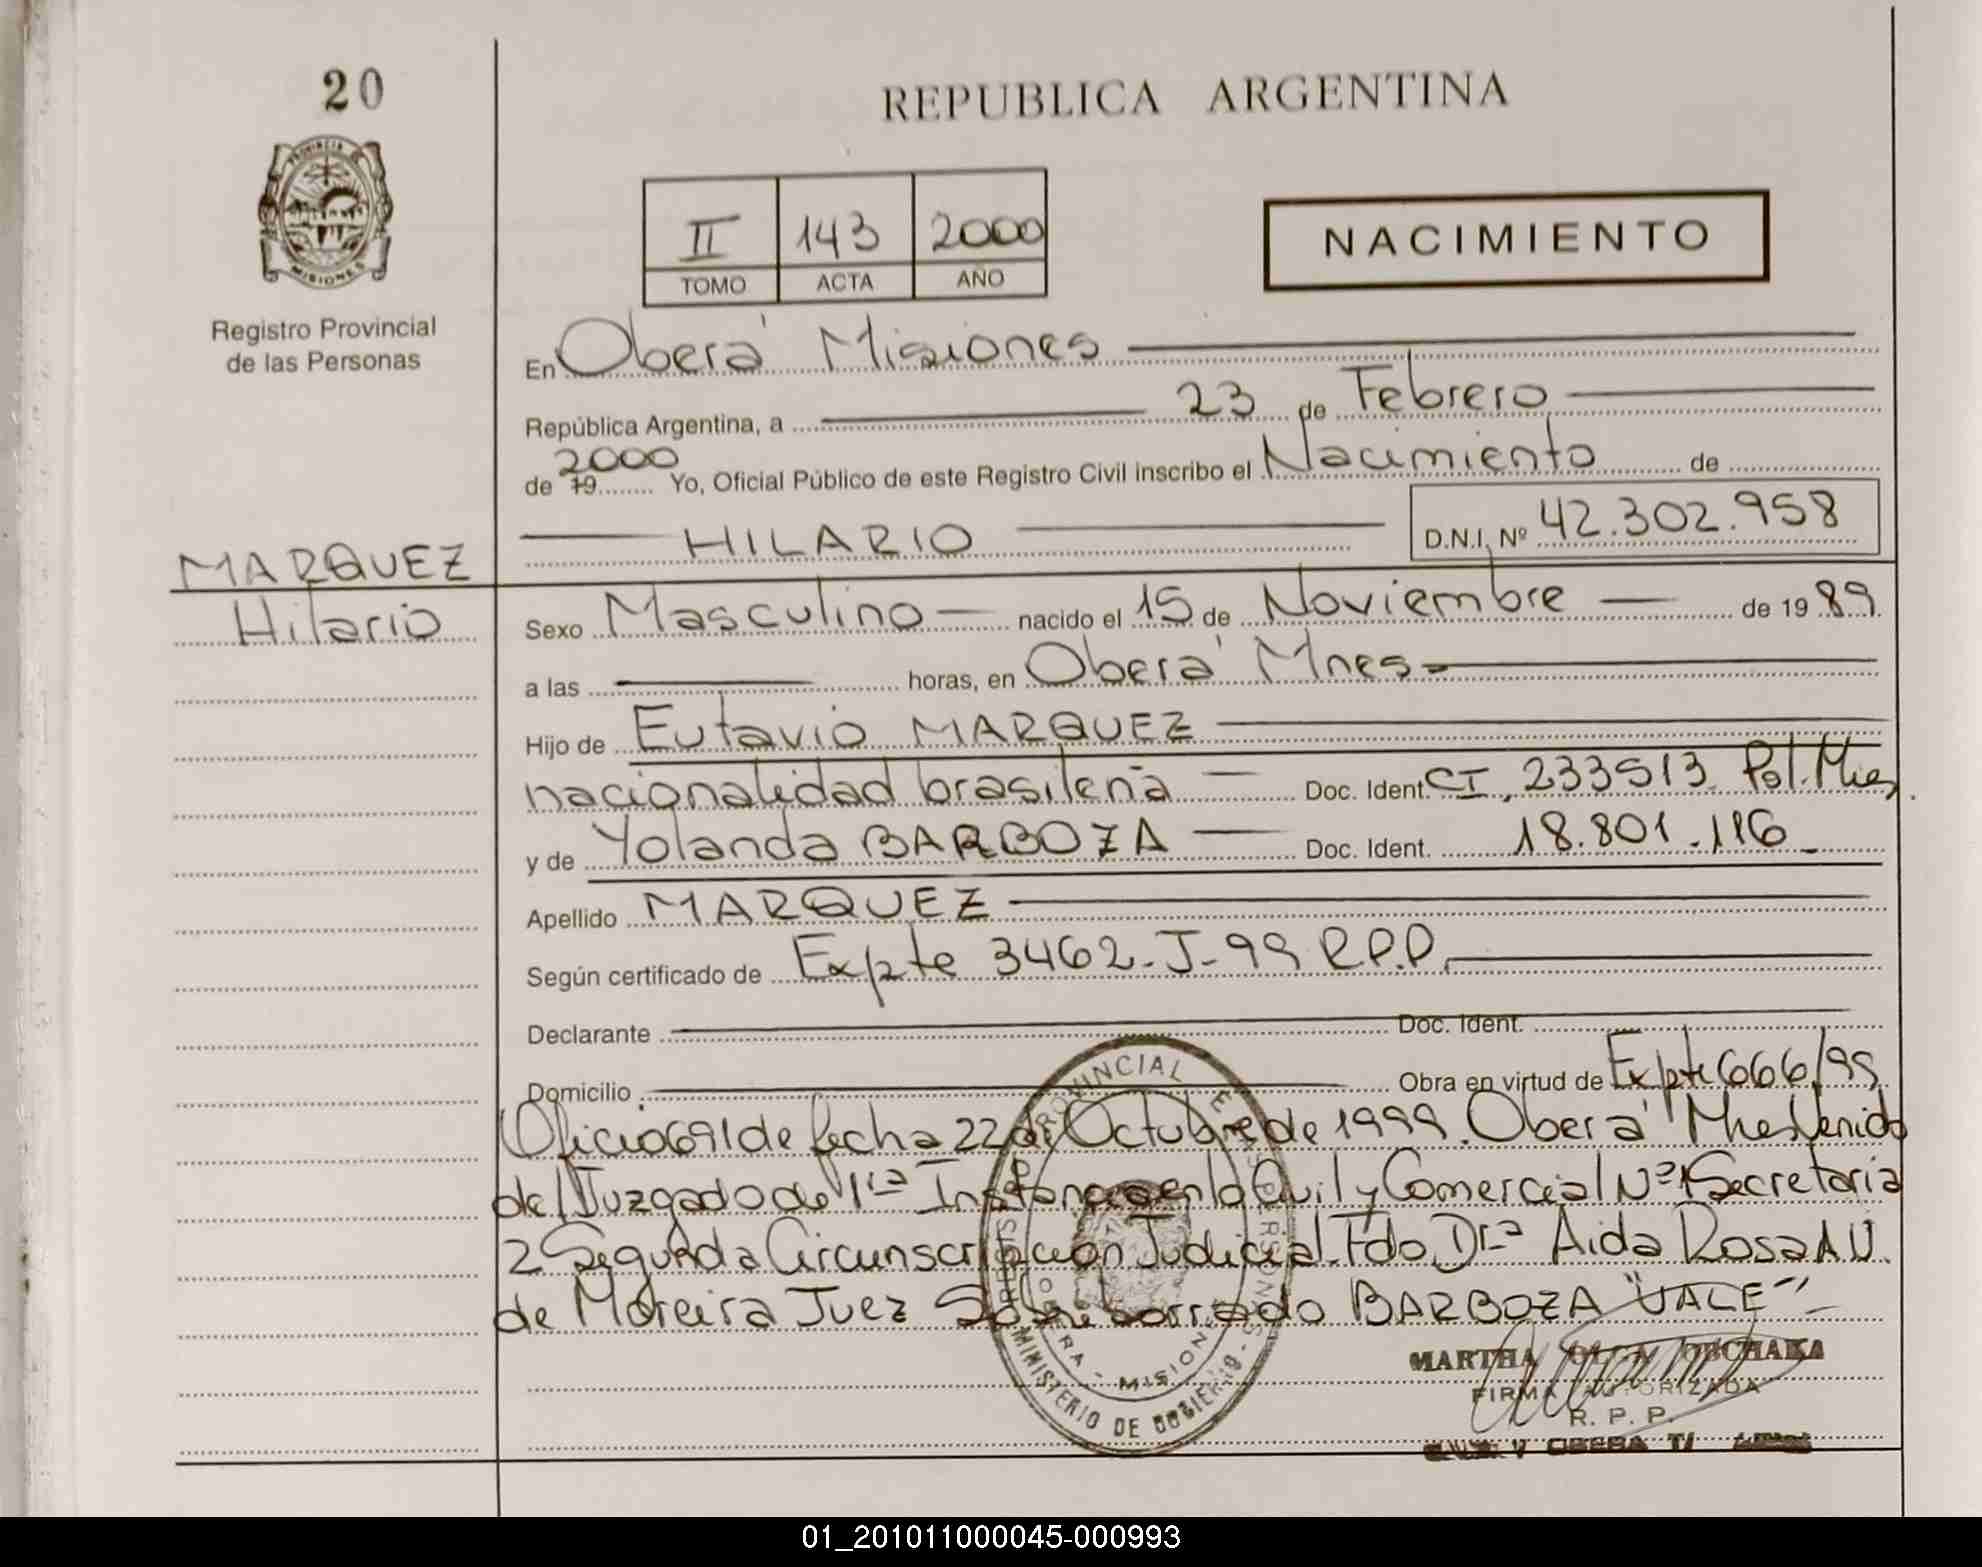 20
REPUBLICA ARGENTINA
PROVINCIA DE
MISIONES
Registro Provincial
de las Personas
II 143 2000
TOMO ACTA AÑO
NACIMIENTO
En Oberá Misiones
República Argentina, a 23 de Febrero
2000
de 19 Yo, Oficial Público de este Registro Civil inscribo el Nacimiento de
HILARIO D.N.I. Nº 42.302.958
MARQUEZ
Hilario
Sexo Masculino nacido el 15 de Noviembre de 19 89
a las horas, en Oberá Mnes
Hijo de Eutavio MARQUEZ
nacionalidad brasileña Doc. Ident. CI, 233513 Pol. Mnes
y de Yolanda BARBOZA Doc. Ident. 18.801.116
Apellido MARQUEZ
Según certificado de Expte 3462-J-99 R.P.P.
Declarante Doc. Ident.
Domicilio Obra en virtud de Expte 666/99
Oficio 691 de fecha 22 de Octubre de 1999. Oberá Mnes Venido
del Juzgado de 1ra Instancia en lo Civil y Comercial Nº 1 Secretaria
2 Segunda Circunscripcion Judicial. Fdo Dra Aida Rosa A.U.
de Moreira Juez Sobre borrado BARBOZA "VALE"
REGISTRO PROVINCIAL DE LAS PERSONAS
MINISTERIO DE GOBIERNO
OBERA - MISIONES
MARTHA OLGA
FIRMA AUTORIZADA
R. P. P.
OBERA
01_201011000045-000993